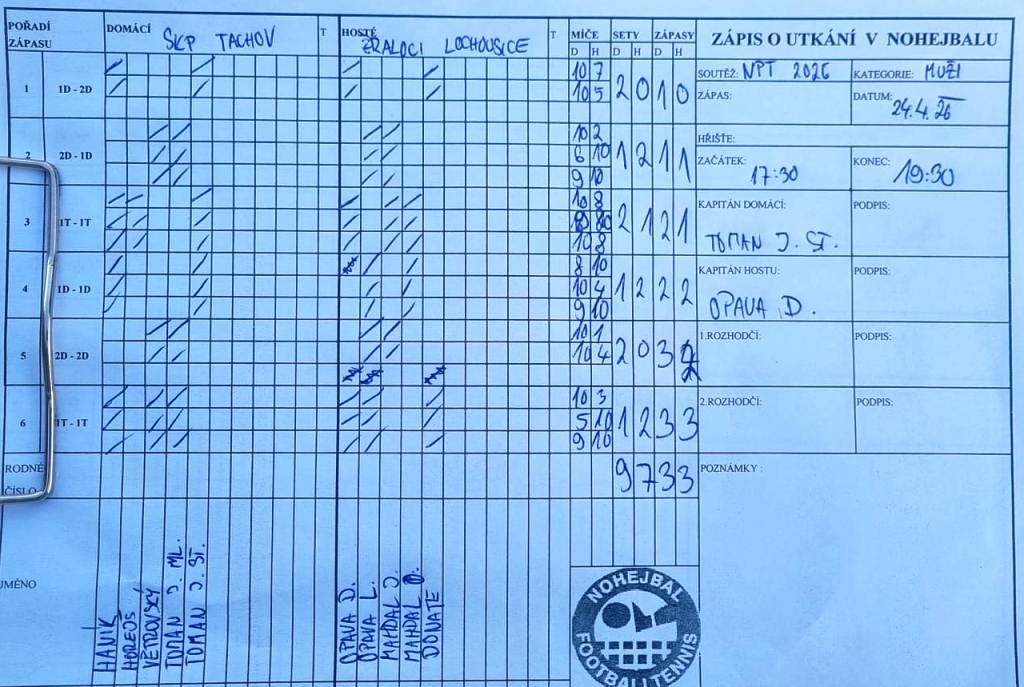 POŘADÍ ZÁPASU DOMÁCÍ SKP TACHOV T HOSTÉ ŽRALOCI LOCHOUSICE T MÍČE D H SETY D H ZÁPASY D H
ZÁPIS O UTKÁNÍ V NOHEJBALU
SOUTĚŽ: NPT 2026 KATEGORIE: MUŽI
ZÁPAS: DATUM: 24.4.26
HŘIŠTĚ:
ZAČÁTEK: 17:30 KONEC: 19:30
KAPITÁN DOMÁCÍ: TOMAN J. ST. PODPIS:
KAPITÁN HOSTU: OPAVA D. PODPIS:
1.ROZHODČÍ: PODPIS:
2.ROZHODČÍ: PODPIS:
POZNÁMKY :
1 1D - 2D 10 7 2 0 1 0
10 5
2 2D - 1D 10 2 1 2 1 1
6 10
9 10
3 1T - 1T 10 8 2 1 2 1
10 8
4 1D - 1D 8 10 1 2 2 2
10 4
9 10
5 2D - 2D 10 1 2 0 3 2
10 4
6 1T - 1T 10 3 1 2 3 3
5 10
9 10
RODNÉ ČÍSLO 9 7 3 3
JMÉNO
HANÍK
HOREOŠ
VĚTROVSKÝ
TOMAN J. ML.
TOMAN J. ST.
OPAVA D.
OPAVA L.
MAHDAL J.
MAHDAL O.
DONATE
NOHEJBAL
FOOTBALLTENNIS